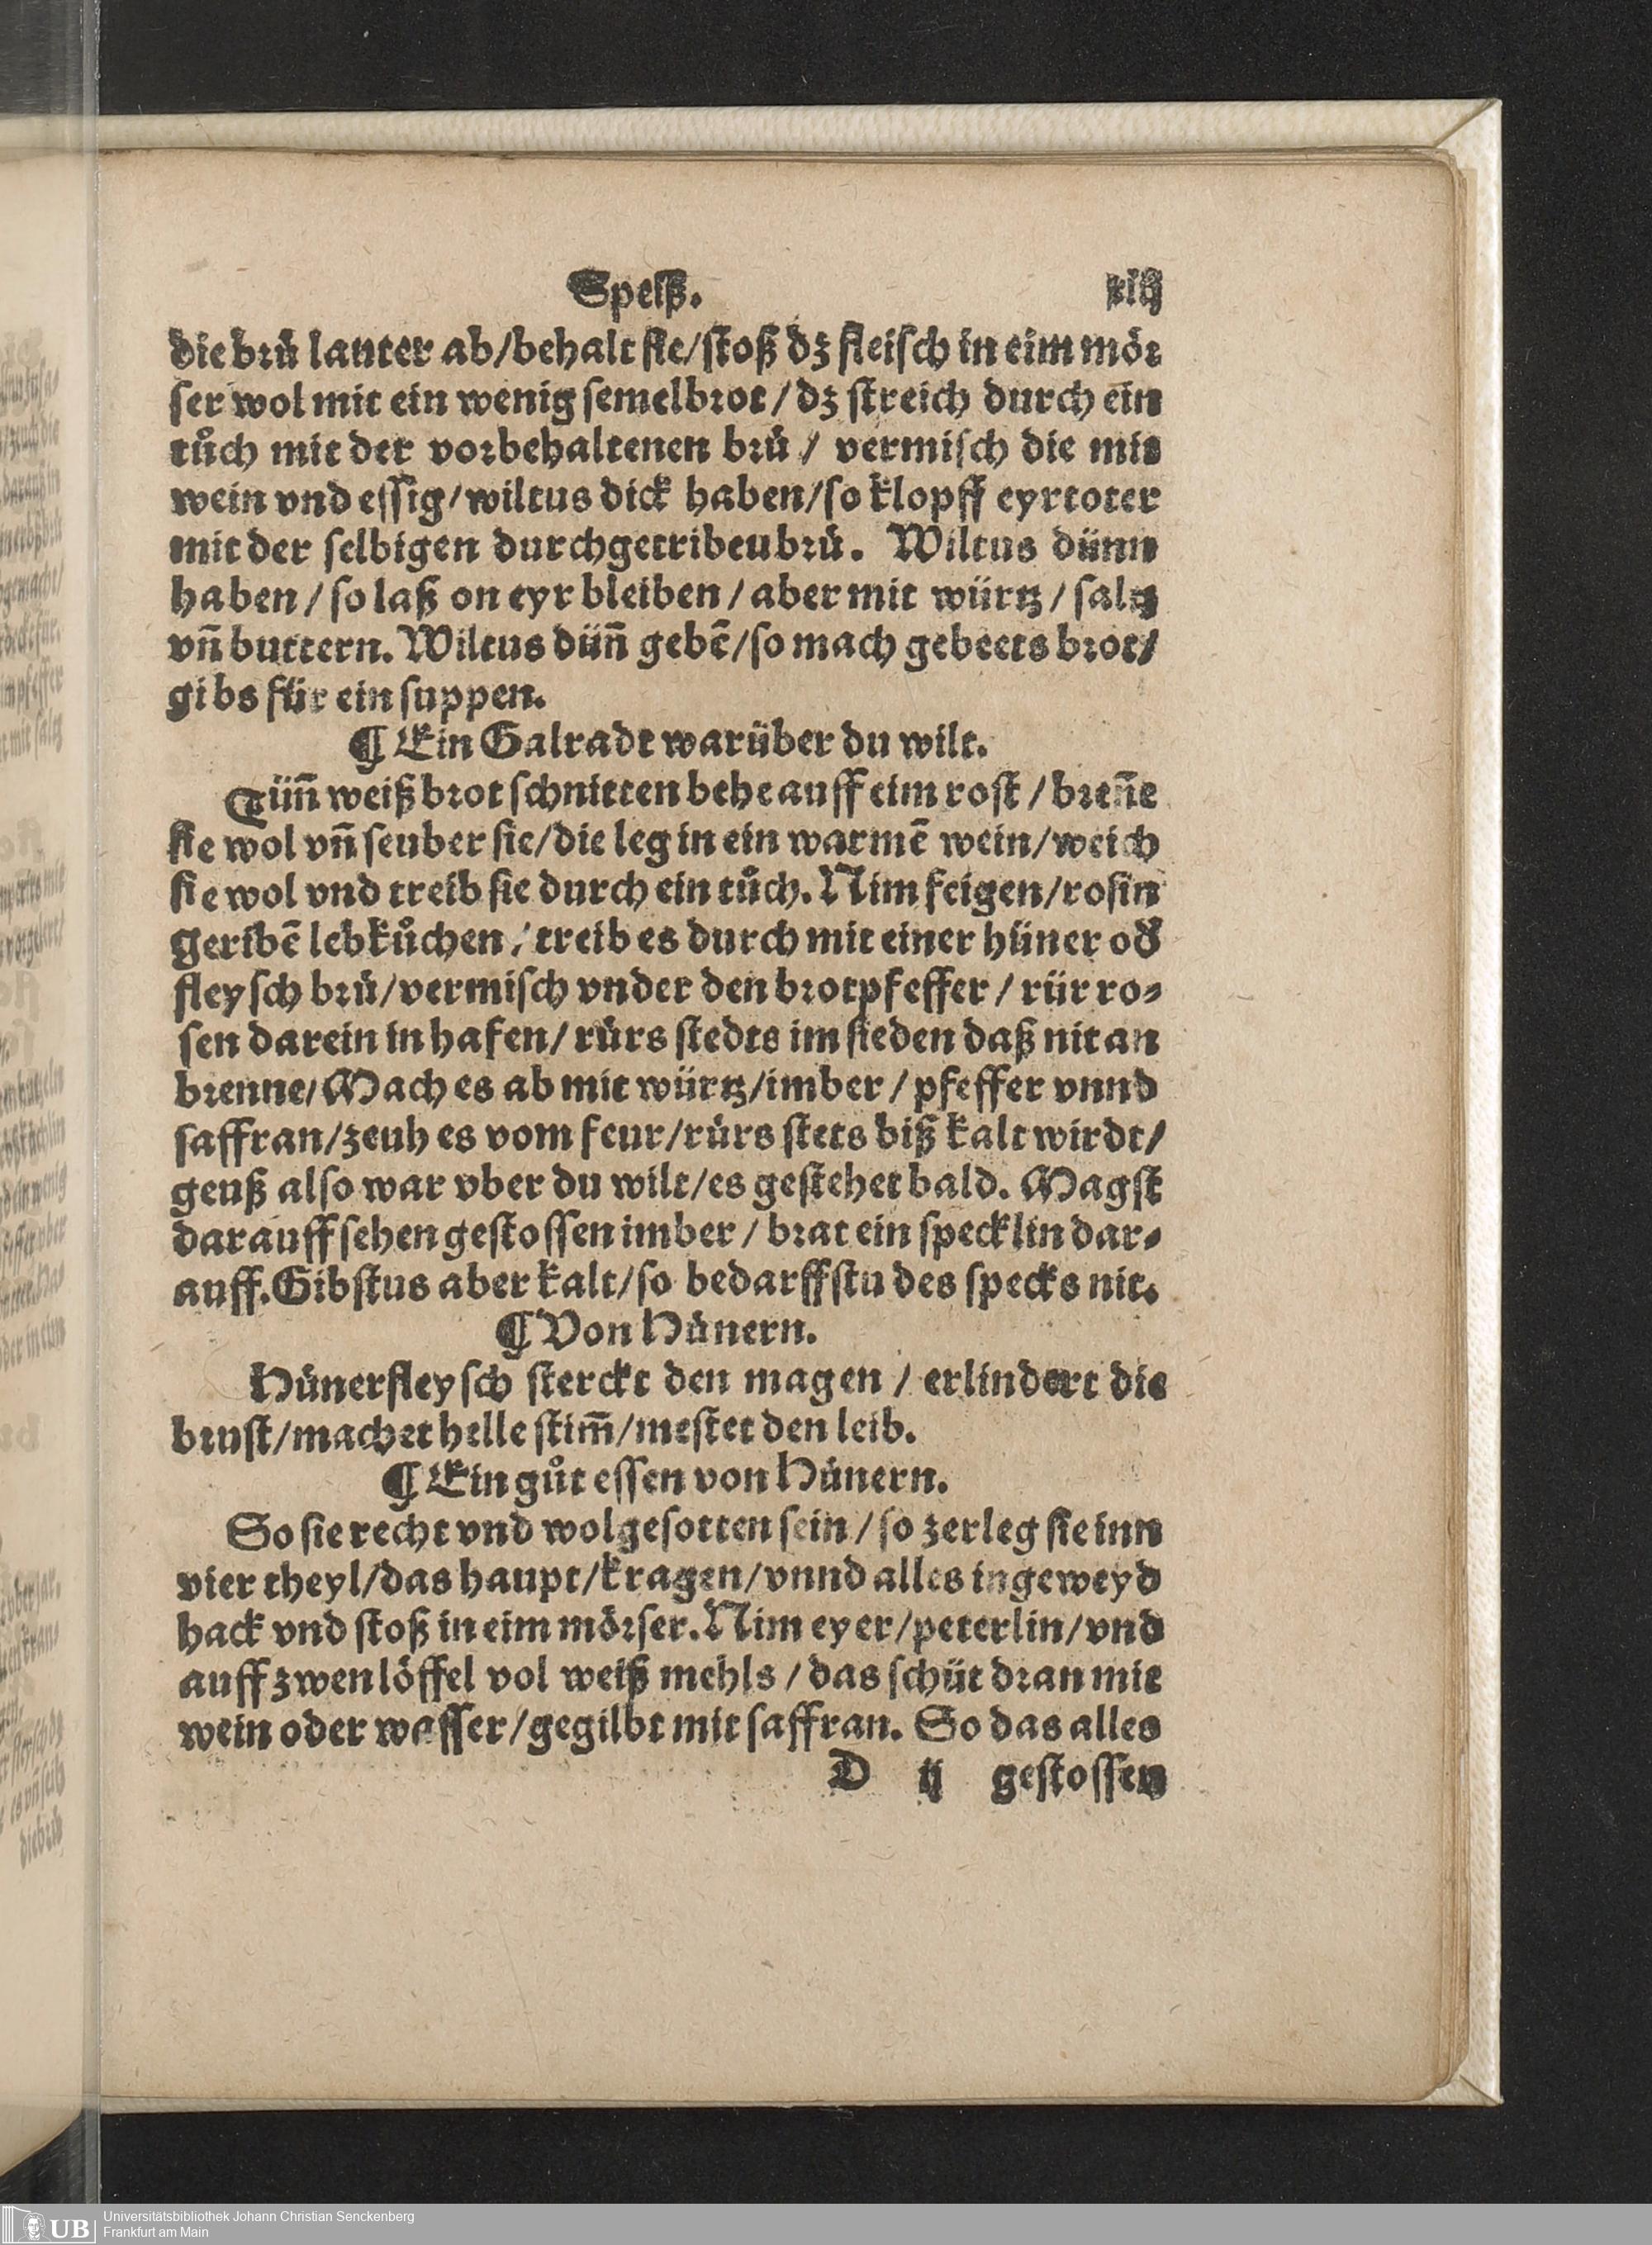 Speiß. xiij
die brů lauter ab/behalt sie/stoß dz fleisch in eim mör
ser wol mit ein wenig semelbrot/dz streich durch ein
tůch mit der vorbehaltenen brů/ vermisch die mit
wein vnd essig/wiltus dick haben/so klopff eyrtoter
mit der selbigen durchgetribeubrů. Wiltus dünn
haben/so laß on eyr bleiben/aber mit würtz/saltz
vñ buttern. Wiltus düñ gebē/so mach gebeets brot/
gibs für ein suppen.
¶ Ein Galradt warüber du wilt.
Tüm̄ weiß brot schnitten behe auff eim rost/breñe
sie wol vñ seuber sie/die leg in ein warmē wein/weich
sie wol vnd treib sie durch ein tůch. Nim feigen/rosin
geribē lebkůchen/treib es durch mit einer hüner oď
fleysch brů/vermisch vnder den brotpfeffer/rür ro⸗
sen darein in hafen/růrs stedts im sieden daß nit an
brenne/Mach es ab mit würtz/imber/pfeffer vnnd
saffran/zeuh es vom feur/růrs stets biß kalt wirdt/
geuß also war vber du wilt/es gestehet bald. Magst
darauff sehen gestossen imber/brat ein specklin dar⸗
auff. Gibstus aber kalt/so bedarffstu des specks nit.
¶ Von Hůnern.
Hůnerfleysch sterckt den magen/ erlindert die
brust/machet helle stim̄/mestet den leib.
¶ Ein gůt essen von Hůnern.
So sie recht vnd wolgesotten sein/so zerleg sie inn
vier theyl/das haupt/kragen/vnnd alles ingeweyd
hack vnd stoß in eim mörser. Nim eyer/peterlin/vnd
auff zwen löffel vol weiß mehls/das schüt dran mit
wein oder wasser/gegilbt mit saffran. So das alles
D ij gestossen
UB Universitätsbibliothek Johann Christian Senckenberg
Frankfurt am Main